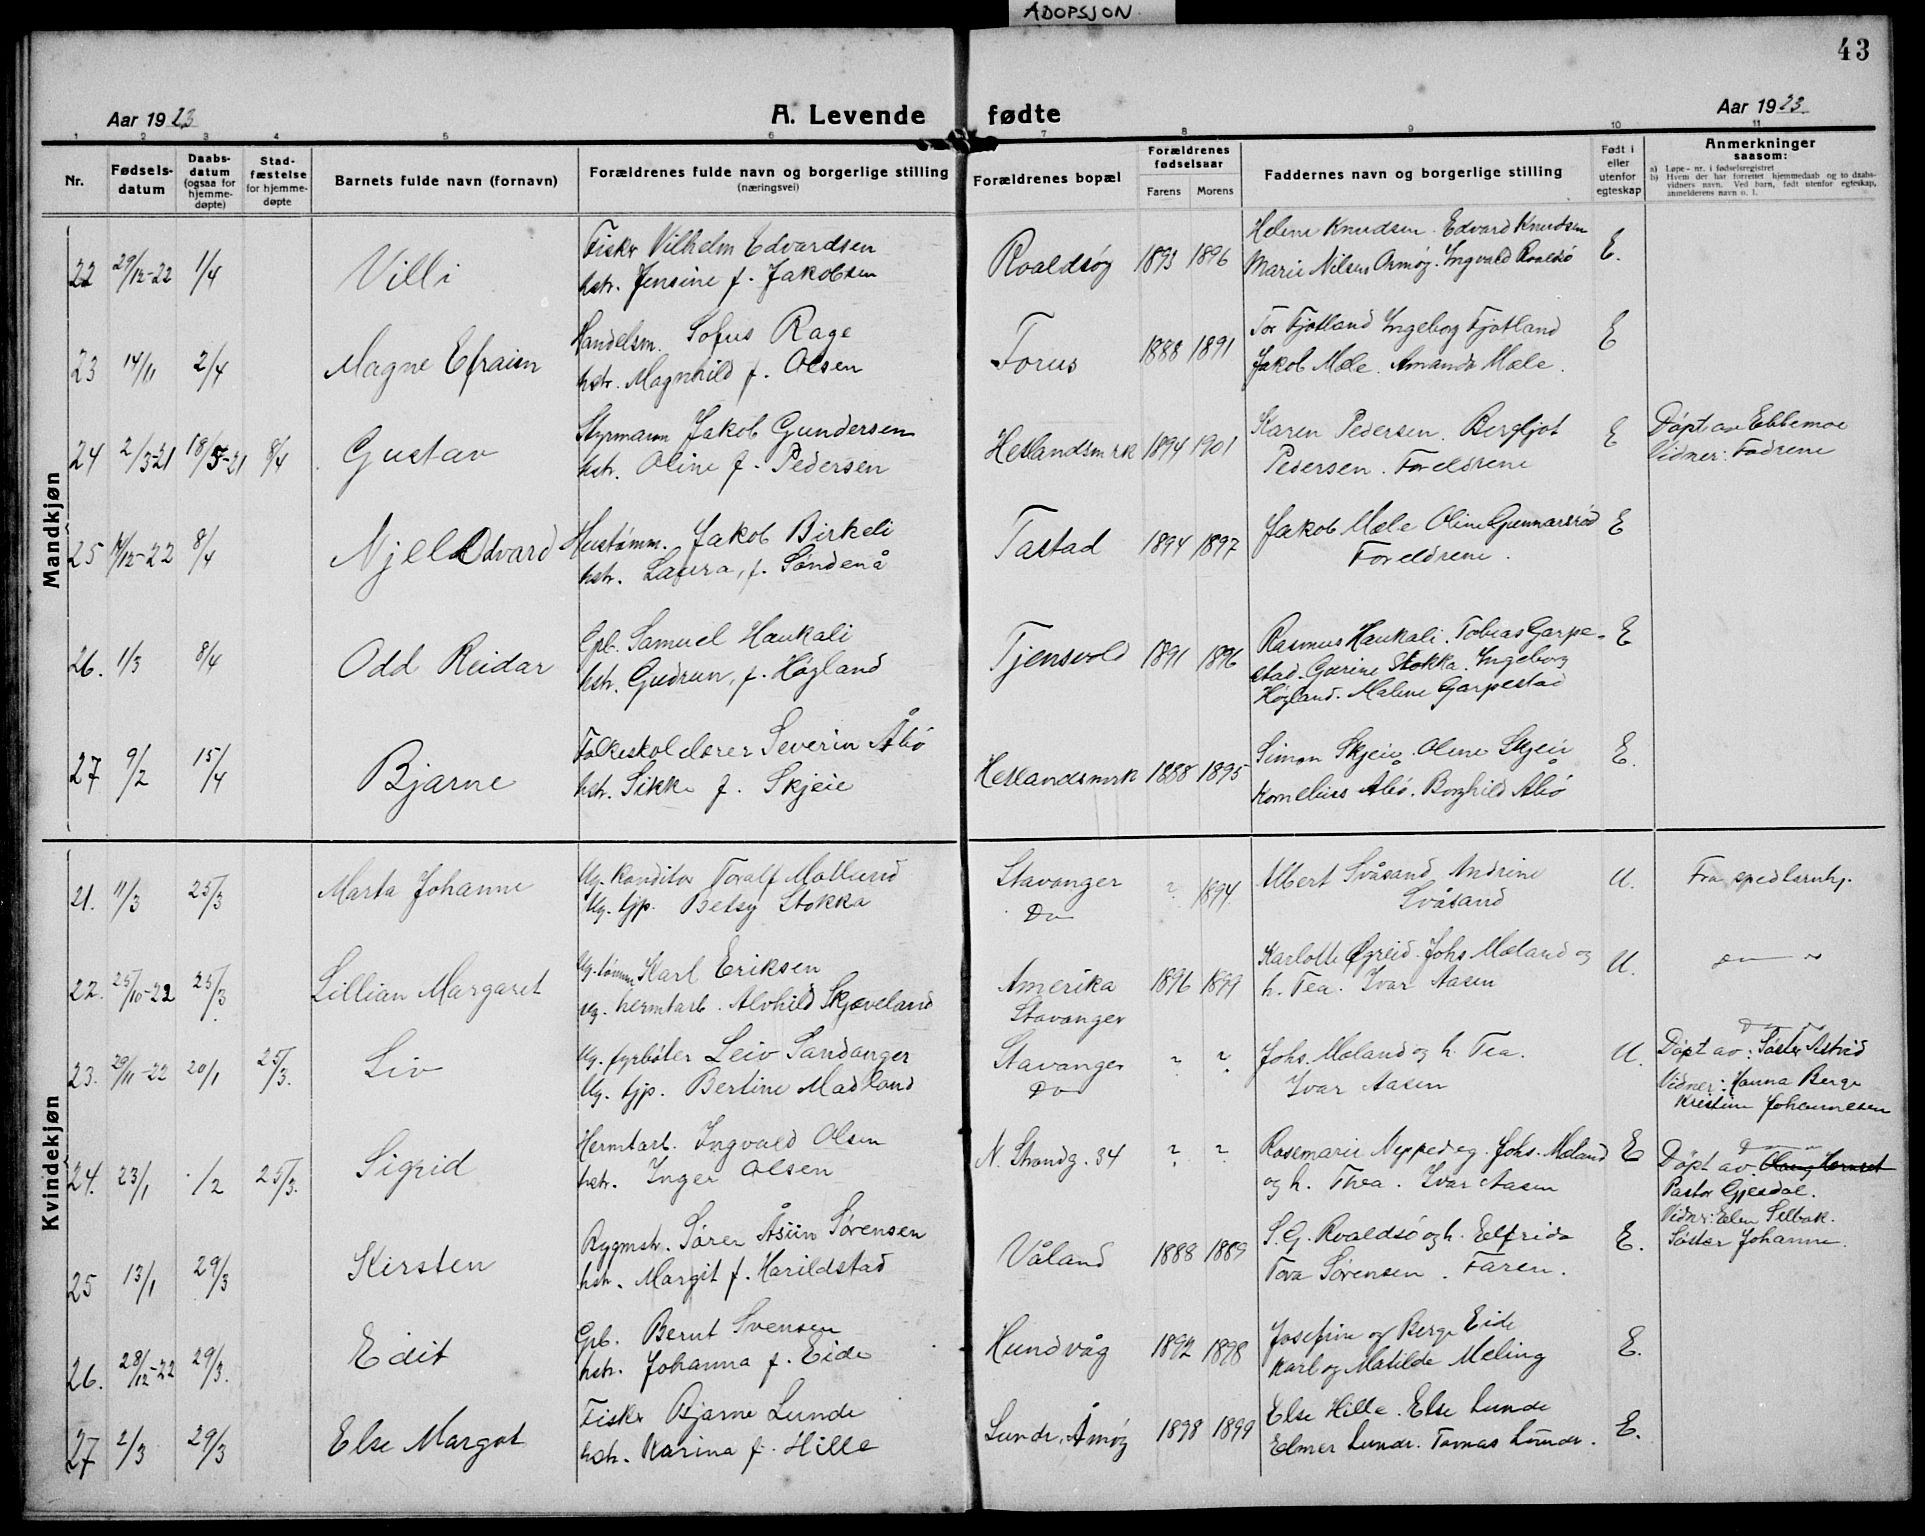 ADOPSJON
43
Aar 1923
A. Levende fødte
Aar 1923.
1 2 3 4 5 6 7 8 9 10 11
Nr.
Fødsels-datum
Daabs-datum (ogsaa for hjemme-døpte)
Stad-fæstelse for hjemme-døpte
Barnets fulde navn (fornavn)
Forældrenes fulde navn og borgerlige stilling (næringsvei)
Forældrenes bopæl
Forældrenes fødselsaar
Farens Morens
Faddernes navn og borgerlige stilling
Født i eller utenfor egteskap
Anmerkninger saasom:
a) Løpe-nr. i fødselsregistret
b) Hvem der har forrettet hjemmedaab og to daabs-vidners navn. Ved barn, født utenfor egteskap, anmelderens navn o. l.
Mandkjøn
22 29/12-22 1/4 Villi
Fisker Vilhelm Edvardsen
hstr. Jensine f. Jakobsen
Roaldsøy 1893 1896
Helene Knudsen. Edvard Knudsen
Marie Nilsen Ormøy. Ingvald Roaldsø
E.
23 14/11 2/4 Magne Efraim
Handelsm. Sofus Rage
hstr. Magnhild f. Olsen
Forus 1888 1891
Tor Fjotland Ingeborg Fjotland
Jakob Mæle. Amanda Mæle.
E
24 2/3-21 18/5-21 8/4 Gustav
Styrmann Jakob Gundersen
hstr. Oline f. Pedersen
Hetlandsmrk 1894 1901
Karen Pedersen. Bergljot
Pedersen. Foreldrene
E
Döpt av Ebbemoe
Vidner: Fadrene
25 14/12-22 8/4 Njell Odvard
Hustømm. Jakob Birkeli
hstr. Laura, f. Söndenå
Tastad 1894 1897
Jakob Mæle Oline Gunnarsrød
Foreldrene.
E
26. 1/3 8/4 Odd Reidar
Gpb. Samuel Haukali
hstr. Gudrun, f. Högland
Tjensvold 1891 1896
Rasmus Haukali. Tobias Garpe-
stad. Gurine Stokka. Ingeborg
Høgland. Malene Garpestad
E
27 9/2 15/4 Bjarne
Folkeskolelærer Severin Åbö
hstr. Sikke f. Skjeie
Hetlandsmrk 1888 1895
Simon Skjeie Olene Skjeie
Kornelius Åbö. Borghild Åbö
E.
Kvindekjøn
21. 11/3 25/3 Marta Johanne
Ug. Konditor Toralf Motlund
Ug. tjp. Betsy Stokka
Stavanger
Do
? 1894
Albert Svåsand Andrine
Svåsand
U.
Fra spedbarnhj.
22. 25/10-22 25/3. Lillian Margaret
Ug. tømm Karl Eriksen
Ug. hermtarb. Alvhild Skjæveland
Amerika
Stavanger
1896 1899
Karlotte Øgreid. Johs Mæland og
h. Tea. Ivar Aasen
U.
23. 29/11-22 20/1 25/3. Liv
Ug. fyrböter Leiv Sandanger
Ug. tjp. Bertine Madland
Stavanger
Do
? ?
Johs. Mæland og h. Tea.
Ivar Aasen
U.
Döpt av: Söster Astrid
Vidner: Hanna Berge
Kristine Johannesen
24. 23/1 /2 25/3. Sigrid
Hermtarb. Ingvald Olsen
hstr. Inger Olsen
N. Strandg. 34 ? ?
Rosemarie Neppedeg. Johs. Mæland
og h. Thea. Ivar Aasen
E
Döpt av
Pastor Gjesdal.
Vidner: Elen Selbak.
Söster Johanne.
25 13/1 29/3 Kirsten
Bygmstr. Sören Åsün Sörensen
hstr. Margit f. Harildstad
Våland 1888 1889
S. G. Roaldsø og h. Elfrida
Tova Sörensen. Faren.
E.
26. 28/12-22 29/3. Edit
Gpb. Bernt Svensen
hstr. Johanna f. Eide
Hundvåg 1892 1898
Josefine og Berge Eide
Karl og Matilde Meling
E.
27 2/3 29/3 Else Margot
Fisker Bjarne Lunde
hstr. Karina f. Hille
Lunde, Åmöy 1898 1899
Else Hille. Else Lunde
Elmer Lunde. Tomas Lunde.
E.